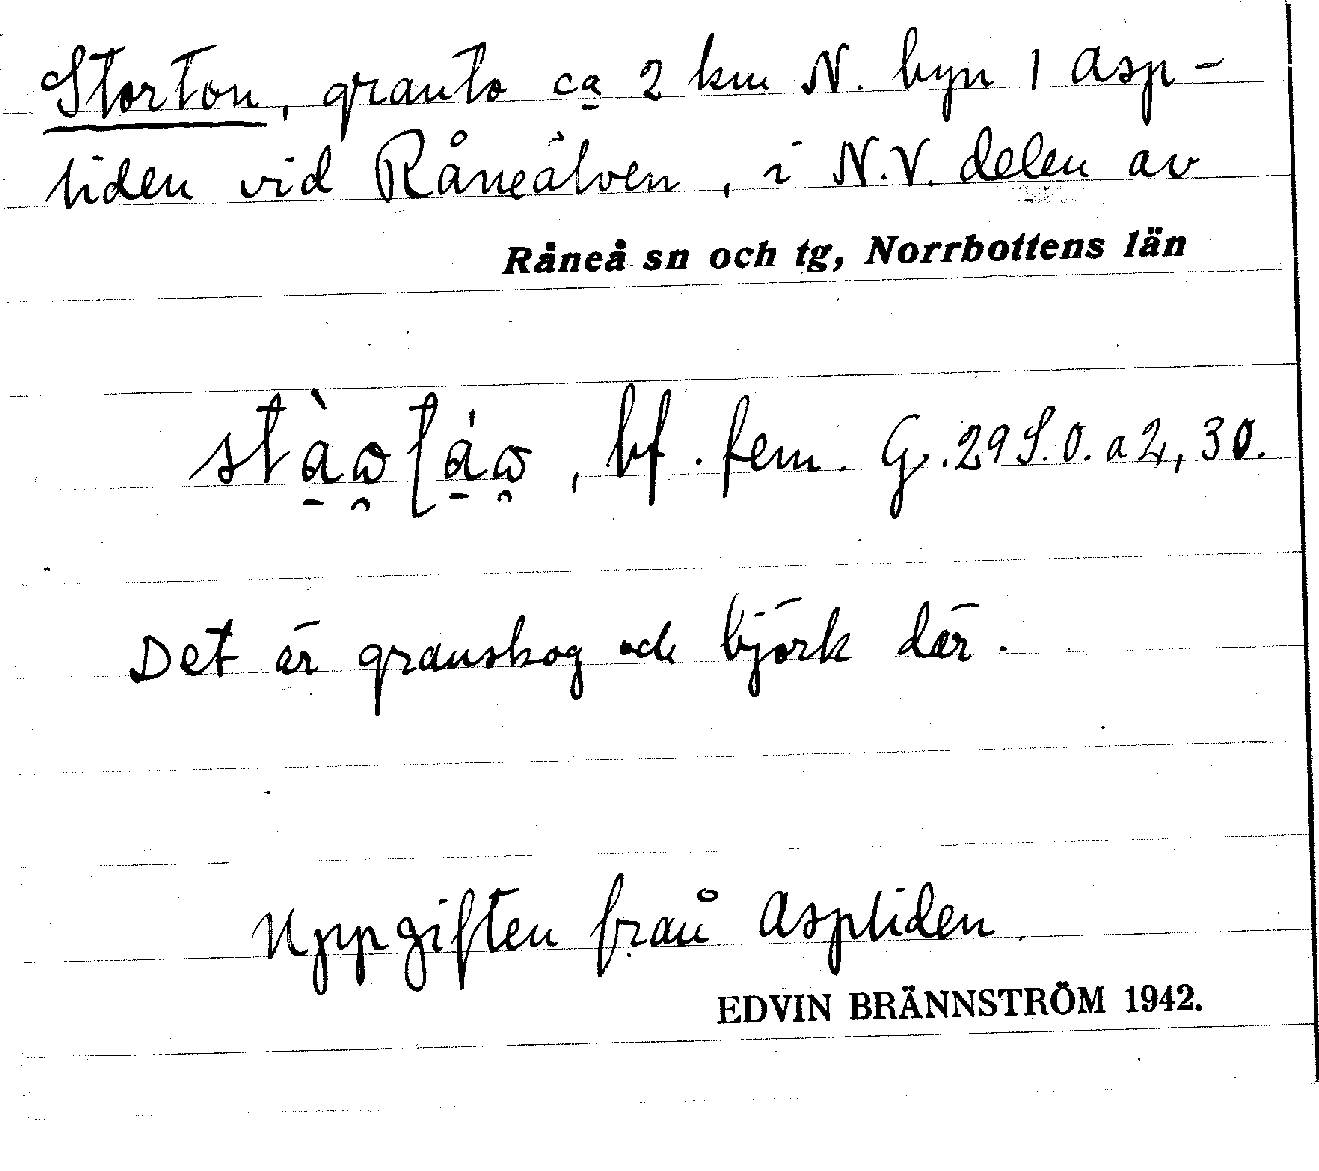 Storton, granto ca 2 km N. byn 1 Asp-
liden vid Råneälven, i N.V. delen av
Råneå sn och tg, Norrbottens län
bf. fem. G. 29 S.O. a 2, 30.
Det är granskog och björk där.
Uppgiften från Aspliden.
EDVIN BRÄNNSTRÖM 1942.